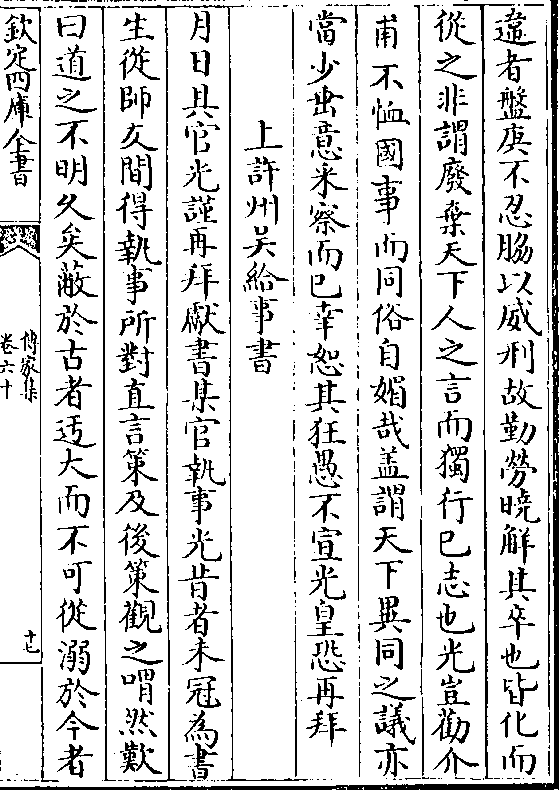 違者盤庚不忍脇以威刑故勤勞曉解其卒也皆化而
從之非謂廢棄天下人之言而獨行已志也光豈勸介
甫不恤國事而同俗自媚哉盖謂天下異同之議亦
當少出意采察而已幸恕其狂愚不宣光皇恐再拜
上許州吴給事書
月日具官光謹再拜獻書某官執事光昔者未冠為書
生從師友間得執事所對直言策及後策觀之喟然歎
曰道之不明久矣蔽於古者迃大而不可從溺於今者
欽定四庫全書
傳家集
卷六十
十七